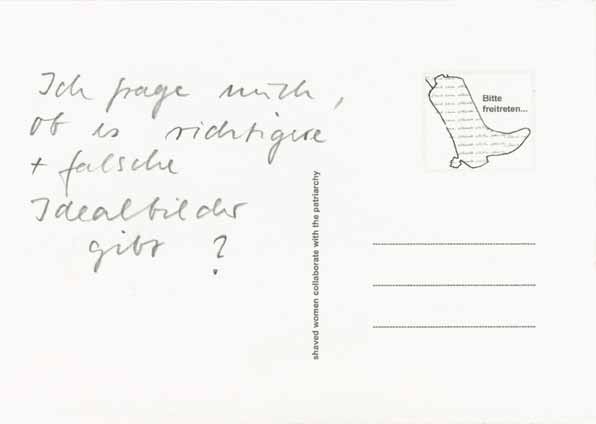 Ich frage mich,
ob es richtigere
+ falsche
Idealbilder
gibt ?
shaved women collaborate with the patriarchy
Bitte
freitreten...